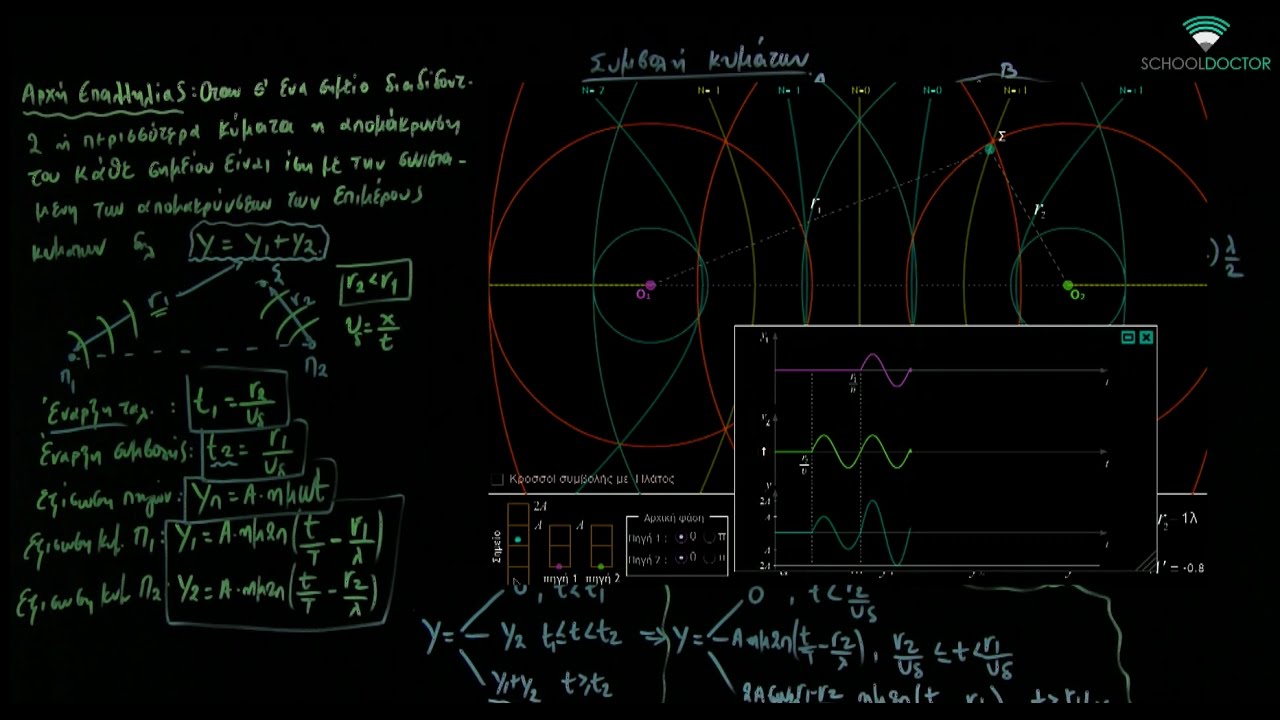 SCHOOLDOCTOR
Συμβολή κυμάτων
Αρχή Επαλληλίας: Οταν σ' ένα σημείο διαδίδοντ.
2 ή περισσότερα κύματα η απομάκρυνση
του κάθε σημείου είναι ίση με την συνιστα-
μένη των απομακρύνσεων των επιμέρους
κυμάτων δηλ y = y₁+y₂.
r₂<r₁
υδ = x/t
r₁
r₂
Σ
Π₁
Π₂
Έναρξη ταλ. : t₁ = r₂/υδ
Έναρξη συμβολής: t₂ = r₁/υδ
Εξίσωση πηγών: yπ = A·ημωt
Εξίσωση κυμ. Π₁: y₁ = A·ημ2π(t/T - r₁/λ)
Εξίσωση κυμ Π₂: y₂ = A·ημ2π(t/T - r₂/λ)
A
B
N=-2
N=-1
N=-1
N=0
N=0
N=+1
N=+1
Σ
r₁
r₂
O₁
O₂
) λ/2
Κροσσοί συμβολής με Πλάτος
Σημείο
2A
A
A
πηγή 1
πηγή 2
Αρχική φάση
Πηγή 1 : 0 π
Πηγή 2 : 0 π
y₁
r₁/υ
t
y₂
r₂/υ
t
y
2A
A
A
2A
t
r₂ = 1λ
= -0.8
y = 0 , t<t₁
y₂ t₁≤t<t₂
y₁+y₂ t≥t₂
⇒ y = 0 , t< r₂/υδ
Aημ2π(t/T - r₂/λ), r₂/υδ ≤ t < r₁/υδ